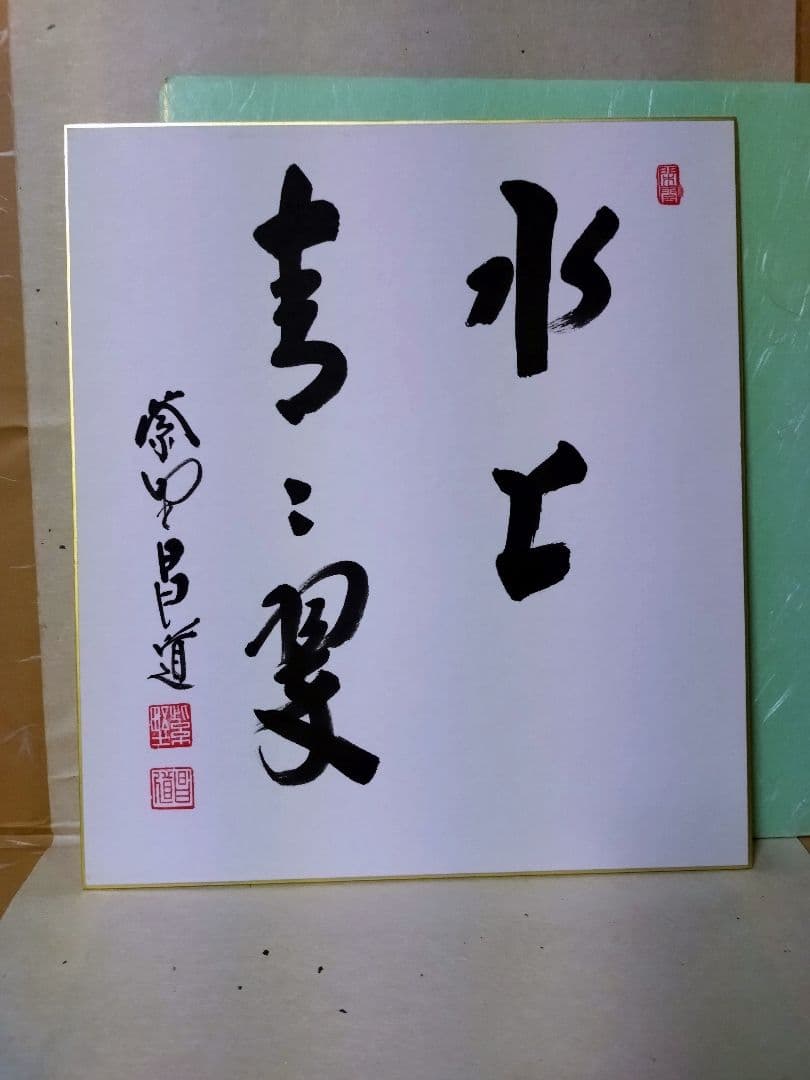 水上
青々翠
紫野昌道